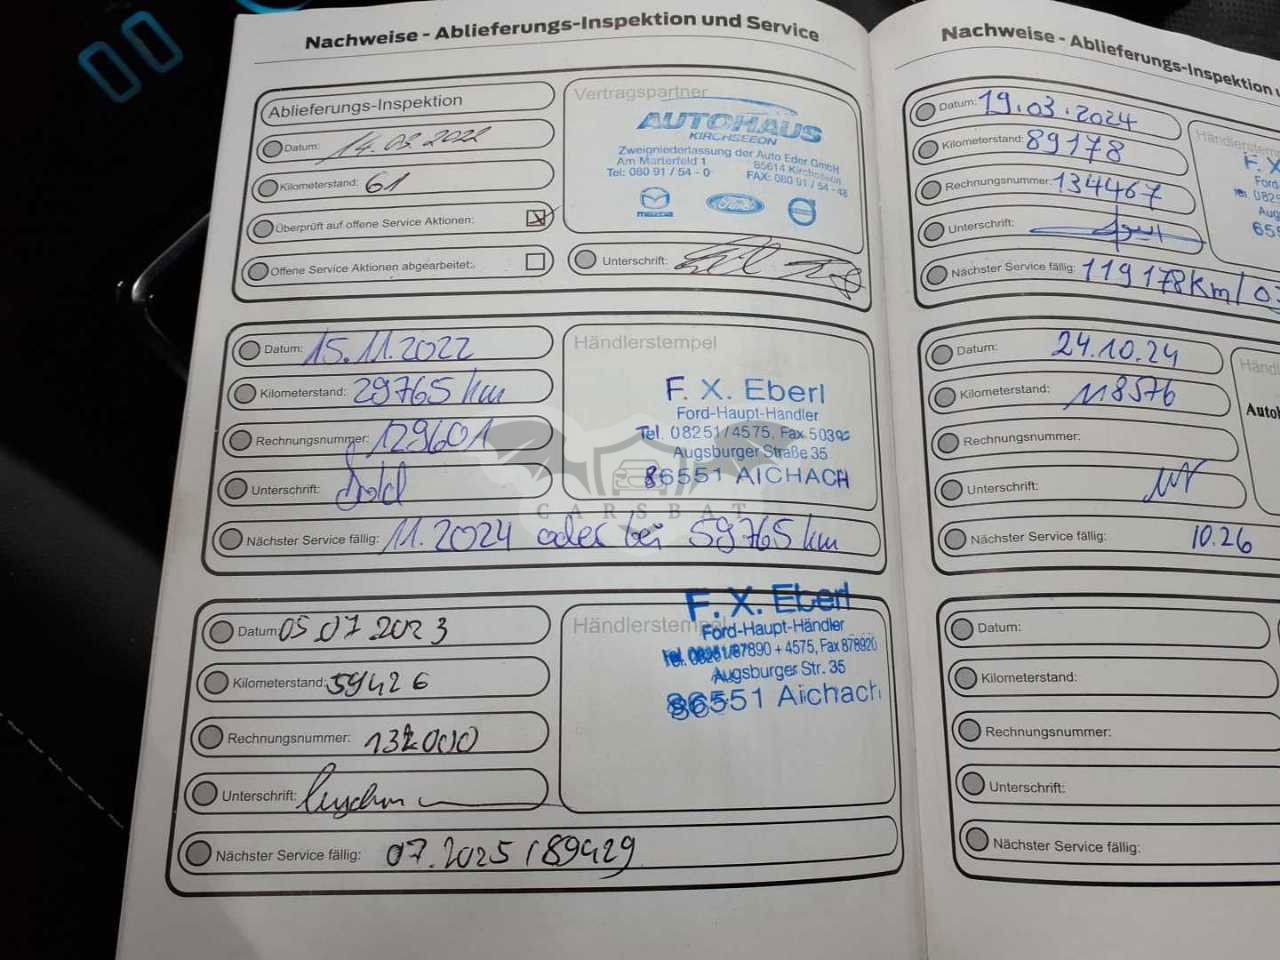 Nachweise - Ablieferungs-Inspektion und Service
Ablieferungs-Inspektion
Datum: 14.03.2022
Kilometerstand: 61
Überprüft auf offene Service Aktionen:
Offene Service Aktionen abgearbeitet:
Vertragspartner
AUTOHAUS
KIRCHSEEON
Zweigniederlassung der Auto Eder GmbH
Am Marterfeld 1 85614 Kirchseeon
Tel: 080 91 / 54 - 0 FAX: 080 91 / 54 - 48
mazda Ford
Unterschrift:
Datum: 15.11.2022
Kilometerstand: 29765 km
Rechnungsnummer: 129601
Unterschrift:
Nächster Service fällig: 11.2024 oder bei 59765 km
Händlerstempel
F. X. Eberl
Ford-Haupt-Händler
Tel. 08251/4575, Fax 50392
Augsburger Straße 35
86551 AICHACH
CARSBAT
Datum: 05 07 2023
Kilometerstand: 59426
Rechnungsnummer: 132000
Unterschrift:
Nächster Service fällig: 07.2025 / 89429
Händlerstempel
F. X. Eberl
Ford-Haupt-Händler
Tel. 08251/87890 + 4575, Fax 878920
Augsburger Str. 35
86551 Aichach
Nachweise - Ablieferungs-Inspektion
Datum: 19.03.2024
Kilometerstand: 89178
Rechnungsnummer: 134467
Unterschrift:
Nächster Service fällig: 119178km/
Händlerstempel
F. X.
Ford-
Augs
Datum: 24.10.24
Kilometerstand: 118576
Rechnungsnummer:
Unterschrift:
Nächster Service fällig: 10.26
Händl
Datum:
Kilometerstand:
Rechnungsnummer:
Unterschrift:
Nächster Service fällig: